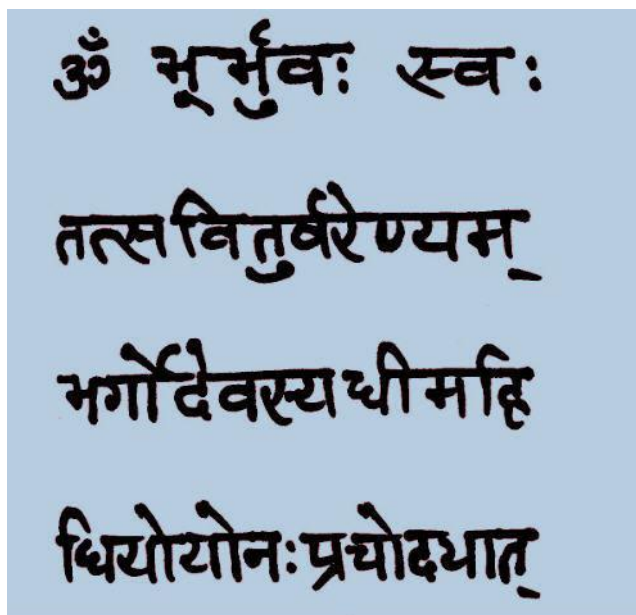 ॐ भूर्भुवः स्वः
तत्सवितुर्वरेण्यम्
भर्गोदेवस्यधीमहि
धियोयोनःप्रचोदयात्